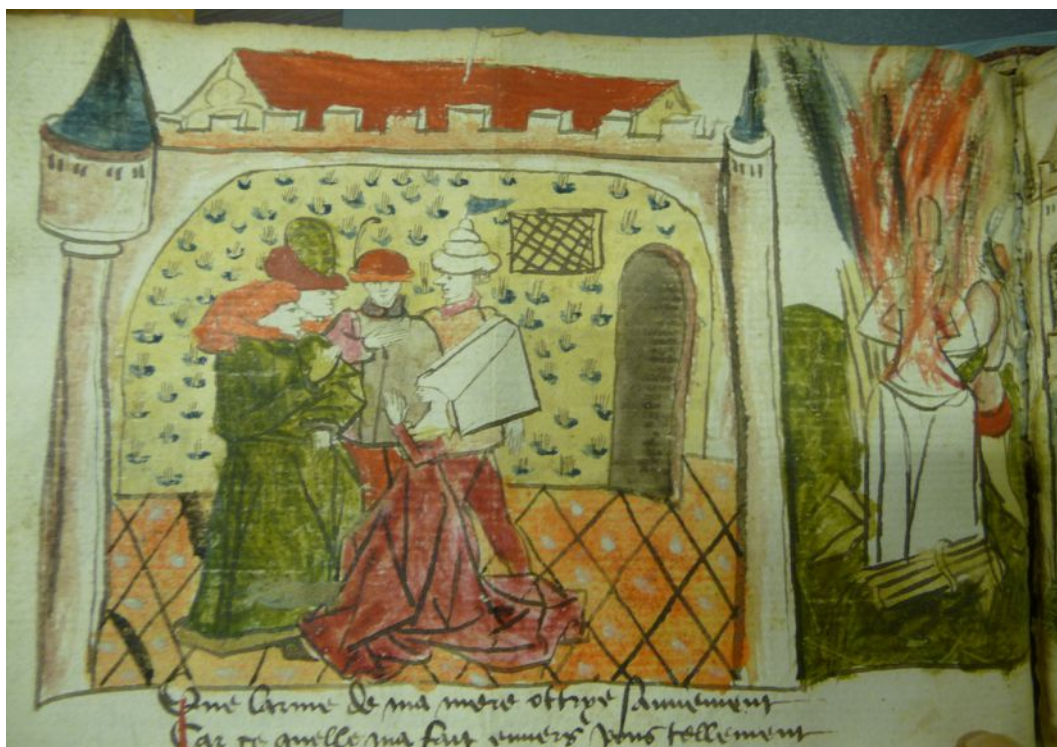 Que larme de ma mere ottrye sauvement
Car ce quelle ma fait envers vous tellement